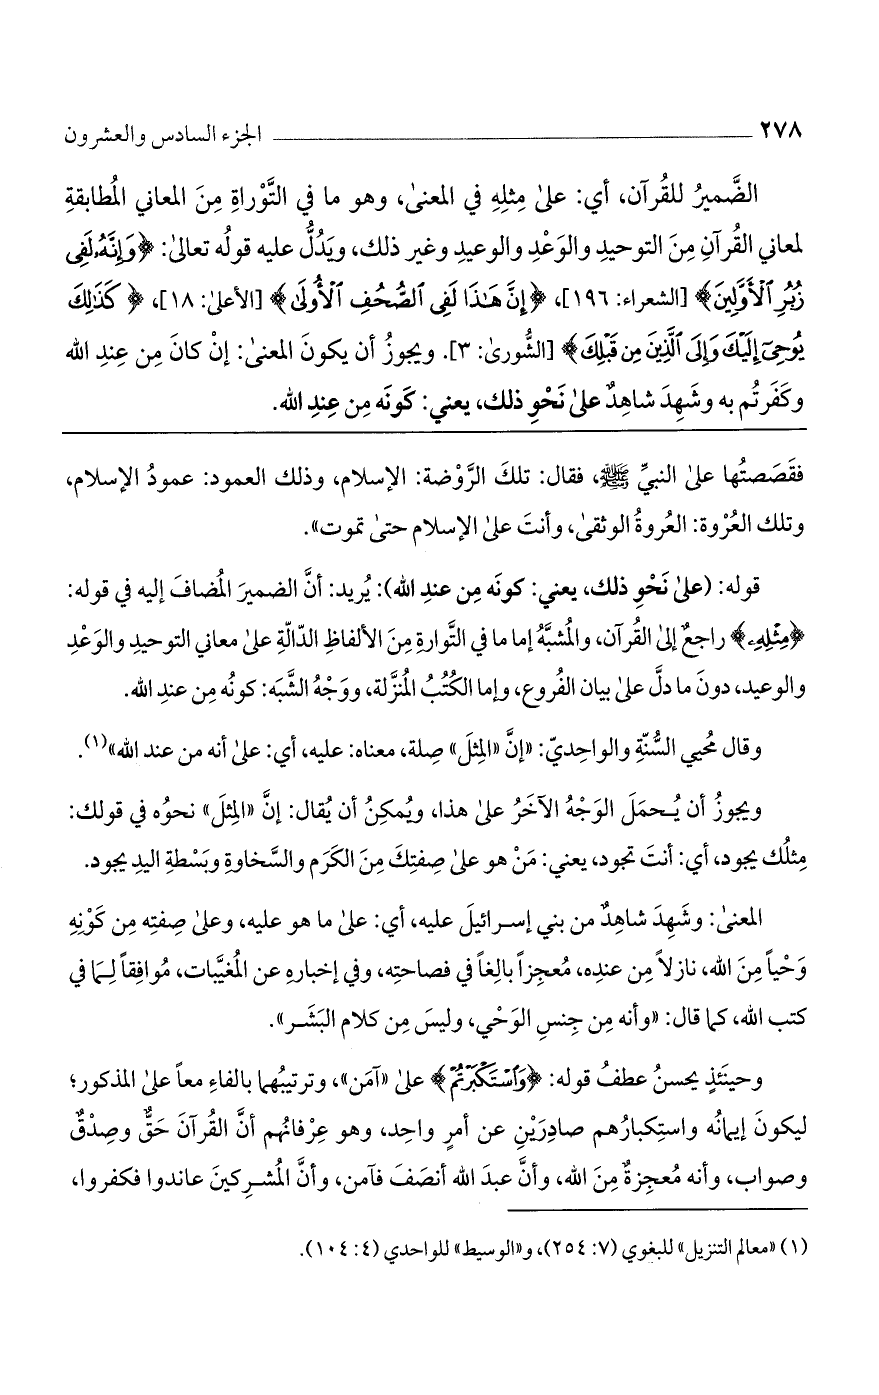 ٢٧٨ ـــــــــ الجزء السادس والعشرون
الضَّميرُ للقُرآن، أي: علىٰ مِثلِهِ في المعنىٰ، وهو ما في التَّوْراةِ مِنَ المعاني المُطابقةِ
لمعاني القُرآنِ مِنَ التوحيدِ والوَعْدِ والوعيدِ وغير ذلك، ويَدُلُّ عليه قولُه تعالىٰ: ﴿وَإِنَّهُۥ لَفِى
زُبُرِ ٱلْأَوَّلِينَ﴾ [الشعراء: ١٩٦]، ﴿إِنَّ هَـٰذَا لَفِى ٱلصُّحُفِ ٱلْأُولَىٰ﴾ [الأعلىٰ: ١٨]، ﴿كَذَٰلِكَ
يُوحِىٓ إِلَيْكَ وَإِلَى ٱلَّذِينَ مِن قَبْلِكَ﴾ [الشُّورىٰ: ٣]. ويجوزُ أن يكونَ المعنىٰ: إنْ كانَ مِن عِندِ الله
وكَفَرتُم به وشَهِدَ شاهِدٌ علىٰ نَحْوِ ذلك، يعني: كَونَه مِن عِندِ الله.
فقَصَصتُها علىٰ النبيِّ ﷺ، فقال: تلكَ الرَّوْضة: الإسلام، وذلك العمود: عمودُ الإسلام،
وتلك العُرْوة: العُروةُ الوثقىٰ، وأنتَ علىٰ الإسلام حتىٰ تموت».
قوله: (علىٰ نَحْوِ ذلك، يعني: كونَه مِن عندِ الله): يُريد: أنَّ الضميرَ المُضافَ إليه في قوله:
﴿مِثْلِهِۦ﴾ راجعٌ إلىٰ القُرآن، والمُشبَّهُ إما ما في التَّوارةِ مِنَ الألفاظِ الدّالّةِ علىٰ معاني التوحيدِ والوَعْدِ
والوعيد، دونَ ما دلَّ علىٰ بيان الفُروع، وإما الكُتُبُ المُنزَّلة، ووَجْهُ الشَّبَه: كونُه مِن عندِ الله.
وقال مُحيي السُّنّةِ والواحِديّ: «إنَّ «المِثلَ» صِلة، معناه: عليه، أي: علىٰ أنه من عند الله»(١).
ويجوزُ أن يُحمَلَ الوَجْهُ الآخَرُ علىٰ هذا، ويُمكِنُ أن يُقال: إنَّ «المِثلَ» نحوُه في قولك:
مِثلُك يجود، أي: أنتَ تجود، يعني: مَنْ هو علىٰ صِفتِكَ مِنَ الكَرَم والسَّخاوةِ وبَسْطةِ اليدِ يجود.
المعنىٰ: وشَهِدَ شاهِدٌ من بني إسرائيلَ عليه، أي: علىٰ ما هو عليه، وعلىٰ صِفتِه مِن كَوْنِهِ
وَحْياً مِنَ الله، نازلاً مِن عنده، مُعجِزاً بالِغاً في فصاحتِه، وفي إخبارِهِ عن المُغيَّبات، مُوافِقاً لِمَا في
كتب الله، كما قال: «وأنه مِن جِنسِ الوَحْي، وليسَ مِن كلام البَشَر».
وحينَئذٍ يحسنُ عطفُ قوله: ﴿وَٱسْتَكْبَرْتُمْ﴾ علىٰ «آمَن»، وترتيبُهما بالفاءِ معاً علىٰ المذكور؛
ليكونَ إيمانُه واستِكبارُهم صادِرَيْنِ عن أمرٍ واحِد، وهو عِرْفانُهم أنَّ القُرآنَ حَقٌّ وصِدْقٌ
وصواب، وأنه مُعجِزةٌ مِنَ الله، وأنَّ عبدَ الله أنصَفَ فآمن، وأنَّ المُشرِكينَ عاندوا فكفروا،
(١) «معالم التنزيل» للبغوي (٧: ٢٥٤)، و«الوسيط» للواحدي (٤: ١٠٤).